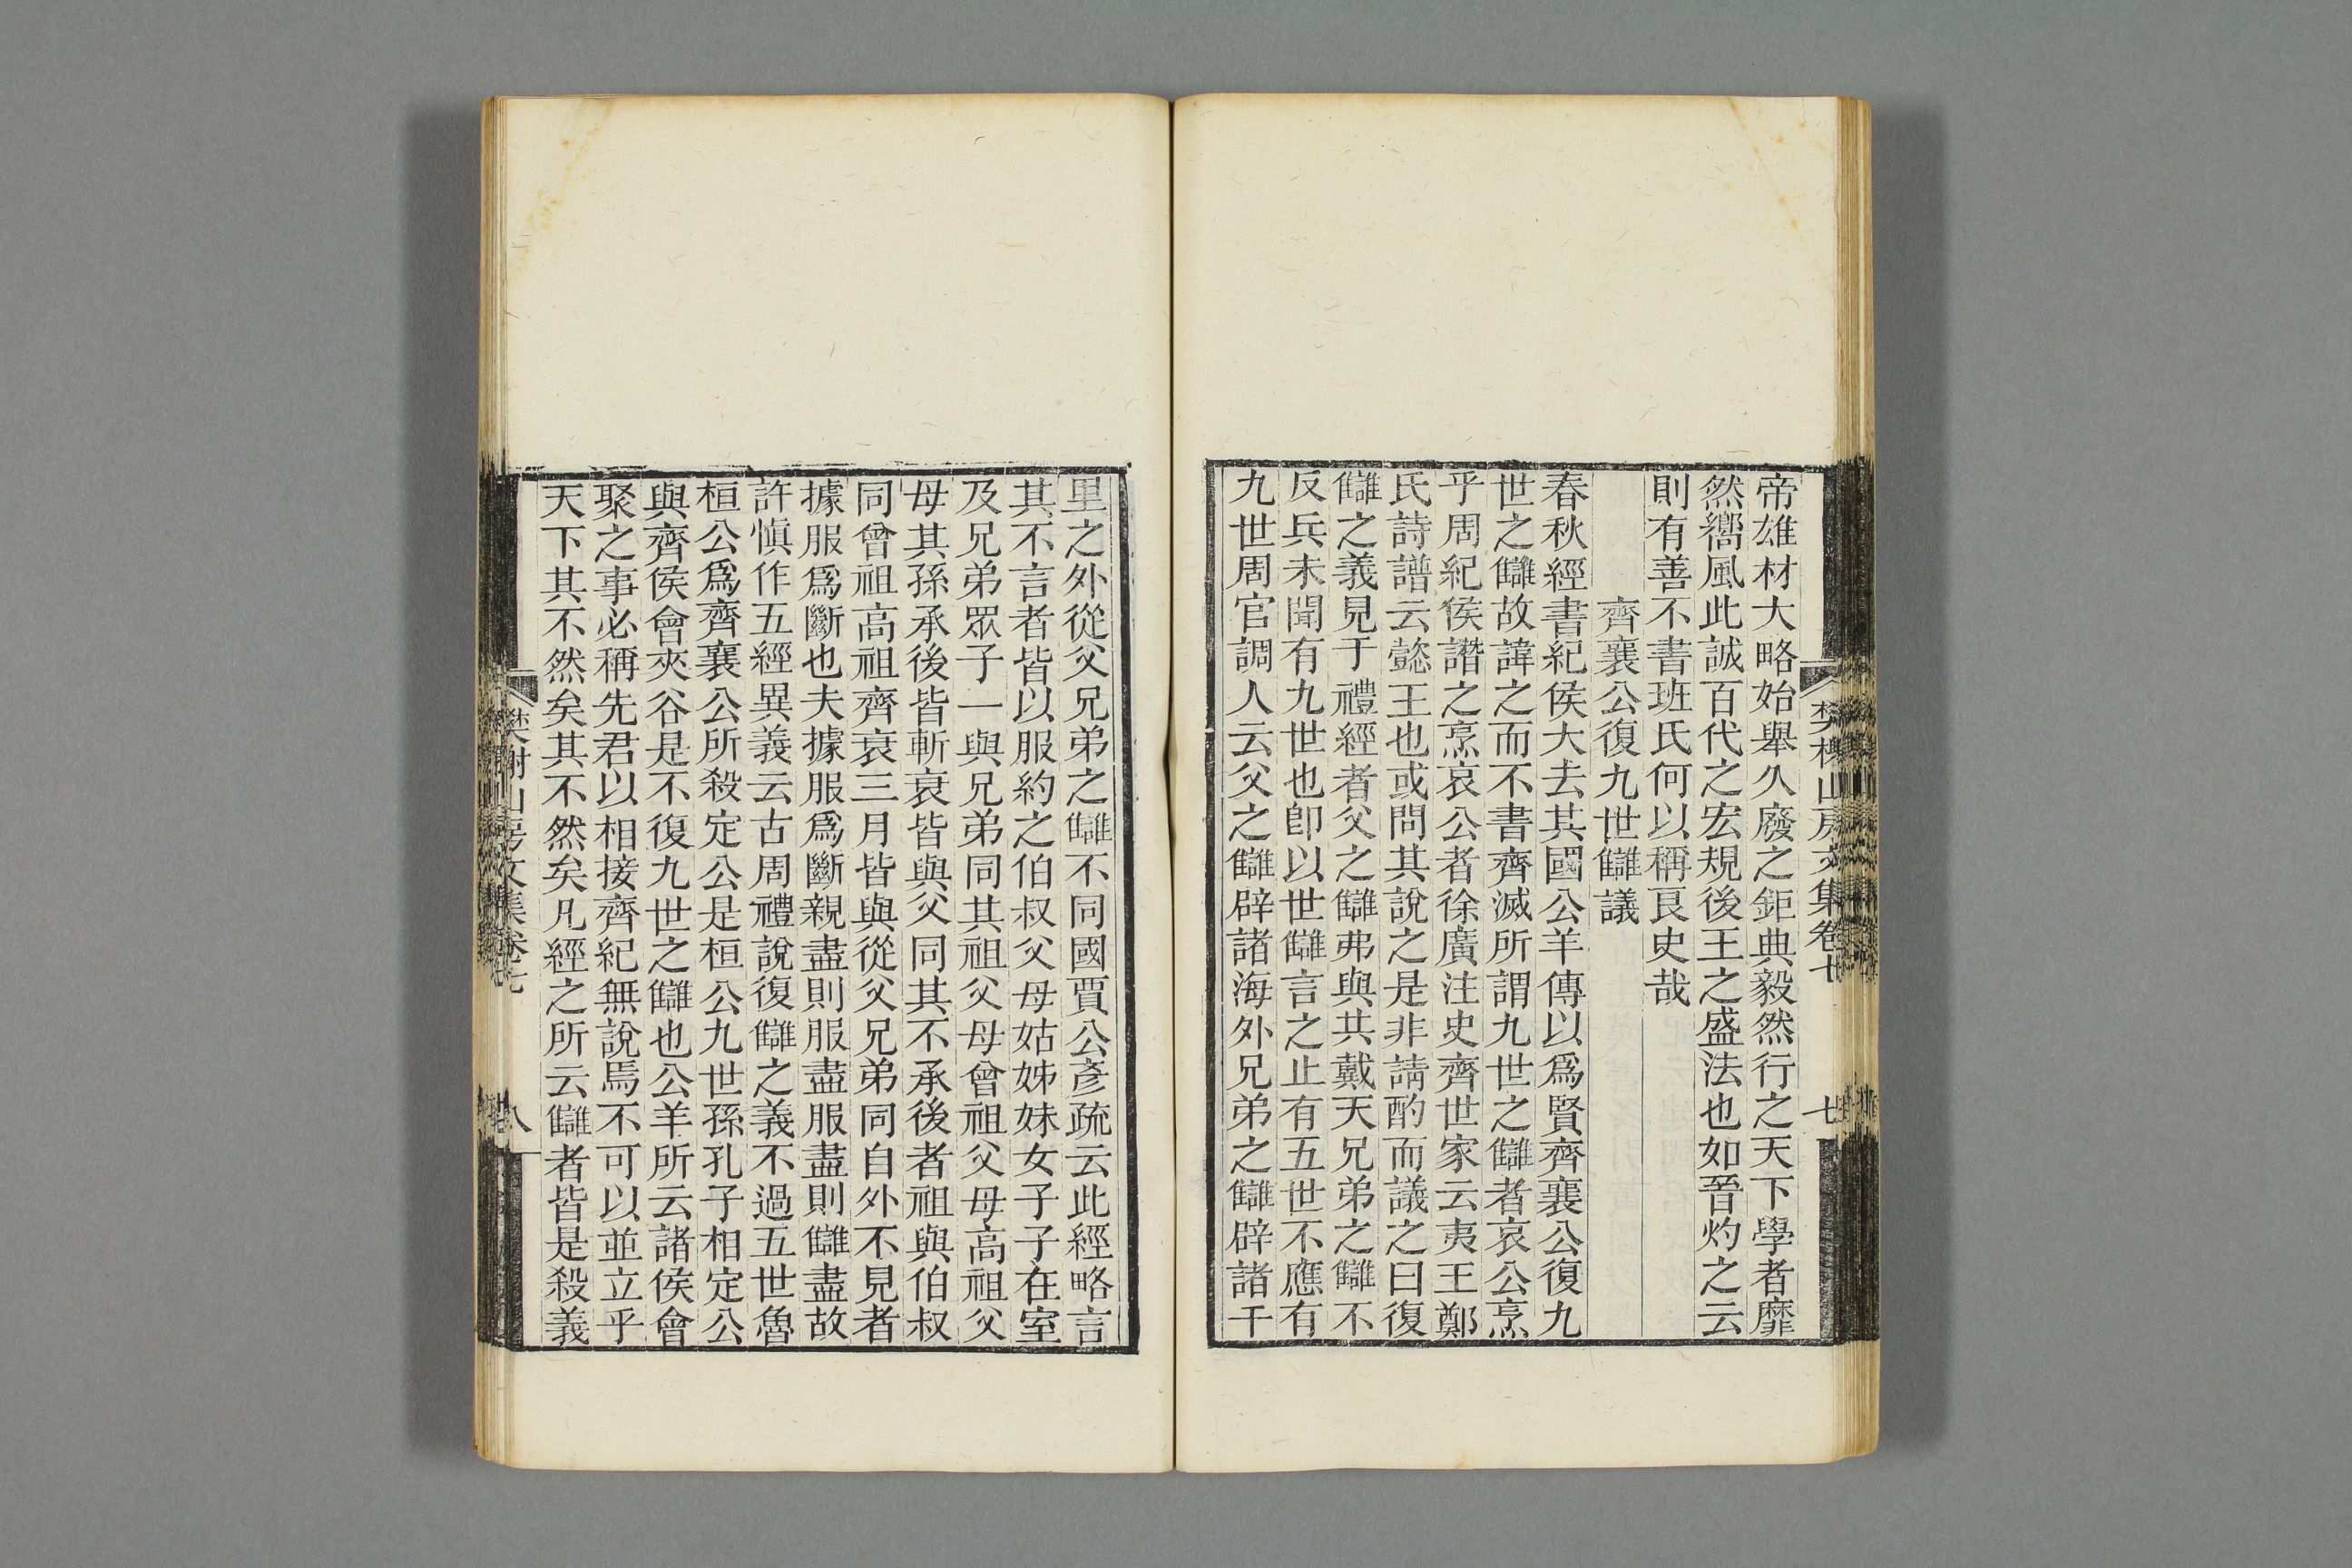 帝雄材大略始舉久廢之鉅典毅然行之天下學者靡
然嚮風此誠百代之宏規後王之盛法也如晉灼之云
則有善不書班氏何以稱良史哉
齊襄公復九世讎議
春秋經書紀侯大去其國公羊傳以爲賢齊襄公復九
世之讎故諱之而不書齊滅所謂九世之讎者哀公烹
乎周紀侯譖之烹哀公者徐廣注史齊世家云夷王鄭
氏詩譜云懿王也或問其說之是非請酌而議之曰復
讎之義見于禮經者父之讎弗與其戴天兄弟之讎不
反兵未聞有九世也卽以世讎言之止有五世不應有
九世周官調人云父之讎辟諸海外兄弟之讎辟諸千
里之外從父兄弟之讎不同國賈公彥疏云此經略言
其不言者皆以服約之伯叔父母姑姊妹女子子在室
及兄弟眾子一與兄弟同其祖父母曾祖父母高祖父
母其孫承後皆斬衰皆與父同其不承後者祖與伯叔
同曾祖高祖齊衰三月皆與從父兄弟同自外不見者
據服爲斷也夫據服爲斷親盡則服盡服盡則讎盡故
許愼作五經異義云古周禮說復讎之義不過五世魯
桓公爲齊襄公所殺定公是桓公九世孫孔子相定公
與齊侯會夾谷是不復九世之讎也公羊所云諸侯會
聚之事必稱先君以相接齊紀無說焉不可以並立乎
天下其不然矣其不然矣凡經之所云讎者皆是殺義
樊榭山房文集卷七
七
樊榭山房文集卷七
八